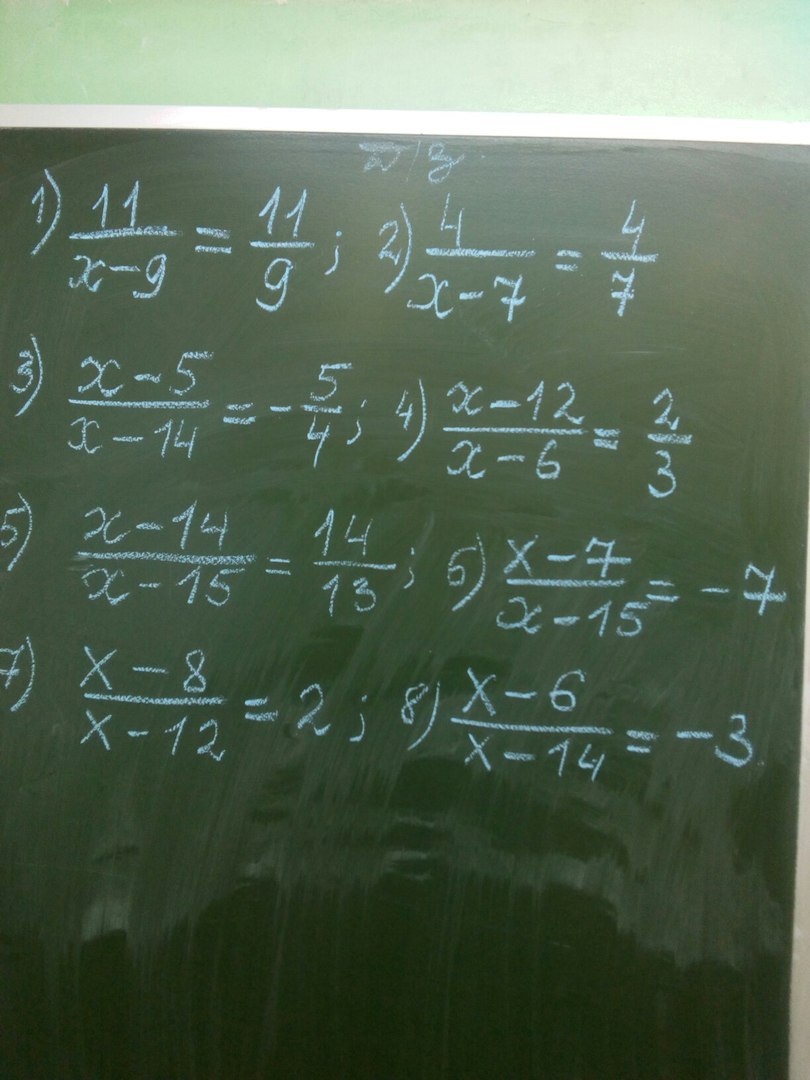 Д/з.
1) 11/(x-9) = 11/9; 2) 4/(x-7) = 4/7
3) (x-5)/(x-14) = -5/4; 4) (x-12)/(x-6) = 2/3
5) (x-14)/(x-15) = 14/13; 6) (x-7)/(x-15) = -7
7) (x-8)/(x-12) = 2; 8) (x-6)/(x-14) = -3